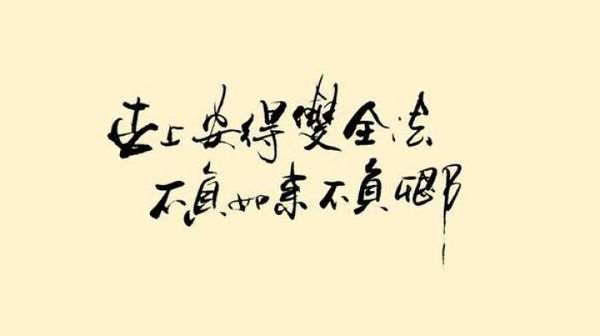 世上安得雙全法
不負如来不負卿